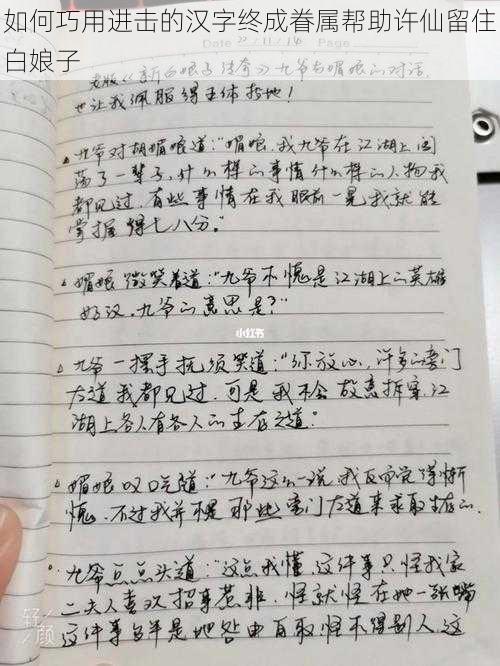 如何巧用进击的汉字终成眷属帮助许仙留住
白娘子
Date
老版《新白娘子传奇》九爷与媚娘的对话,
也让我佩服得五体投地!
九爷对胡媚娘道:“媚娘,我九爷在江湖上闯
荡了一辈子,什么样的事情什么样的人物我
都见过,有些事情在我眼前一晃我就能
掌握得七八分。”
媚娘微笑着道:“九爷不愧是江湖上的英雄
好汉,九爷的意思是?”
小红书
九爷一摆手抚须笑道:“你放心,许多的旁门
左道我都见过,可是我不会故意拆穿,江
湖上各人有各人的生存之道。”
媚娘叹口气道:“九爷这么一说,我反而觉得惭
愧,不过我并不是那些旁门左道来求取生存的。
九爷点点头道:“这点我懂,这件事只怪我家
二夫人喜欢招事惹非,怪就怪在她一张嘴
这件事多半是她咎由自取,怪不得别人,这
轻颜